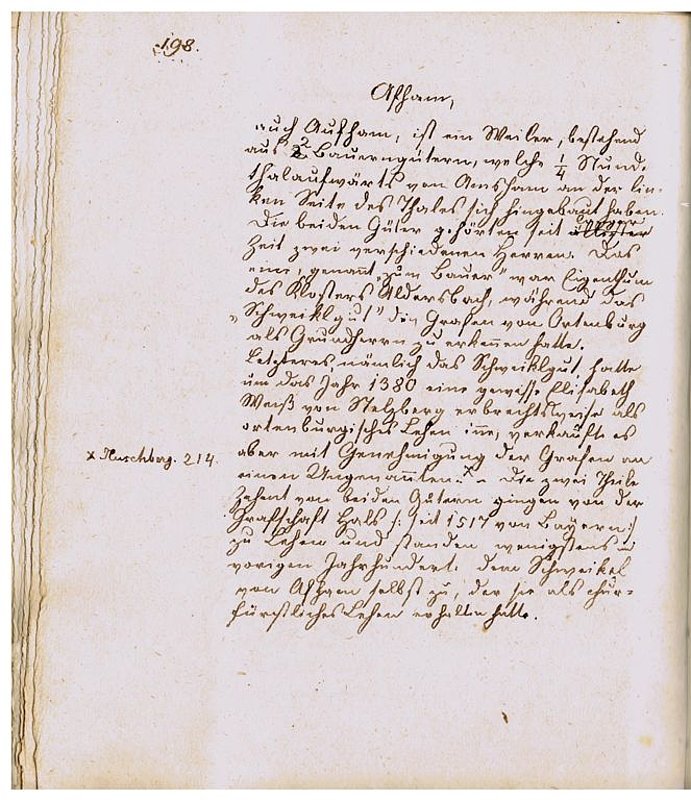 198.
Afham,
auch Aufham, ist ein Weiler, bestehend
aus 2 Bauerngütern, welche 1/4 Stund.
thalaufwärts von Amsham an der lin-
ken Seite des Thales sich hingebaut haben.
Die beiden Güter gehörten seit
Zeit zwei verschiedenen Herren. Das
eine, genannt „zum Bauer" war Eigenthum
des Klosters Aldersbach, während das
„Schweiklgut" die Grafen von Ortenburg
als Grundherrn zu erkennen hatte.
Letzteres, nämlich das Schweiklgut, hatte
um das Jahr 1380 eine gewisse Elisabeth
Weiß von Stelzberg erbrechtsweise als
ortenburgisches Lehen inne, verkaufte es
x Huschberg. 214.
aber mit Genehmigung der Grafen an
einen Ungenannten.x – Die zwei Theile
Zehent von beiden Gütern gingen von der
Grafschaft Hals /: seit 1517 von Bayern :/
zu Lehen und standen wenigstens im
vorigen Jahrhundert dem Schweikel
von Afham selbst zu, der sie als chur-
fürstliches Lehen erhalten hatte.